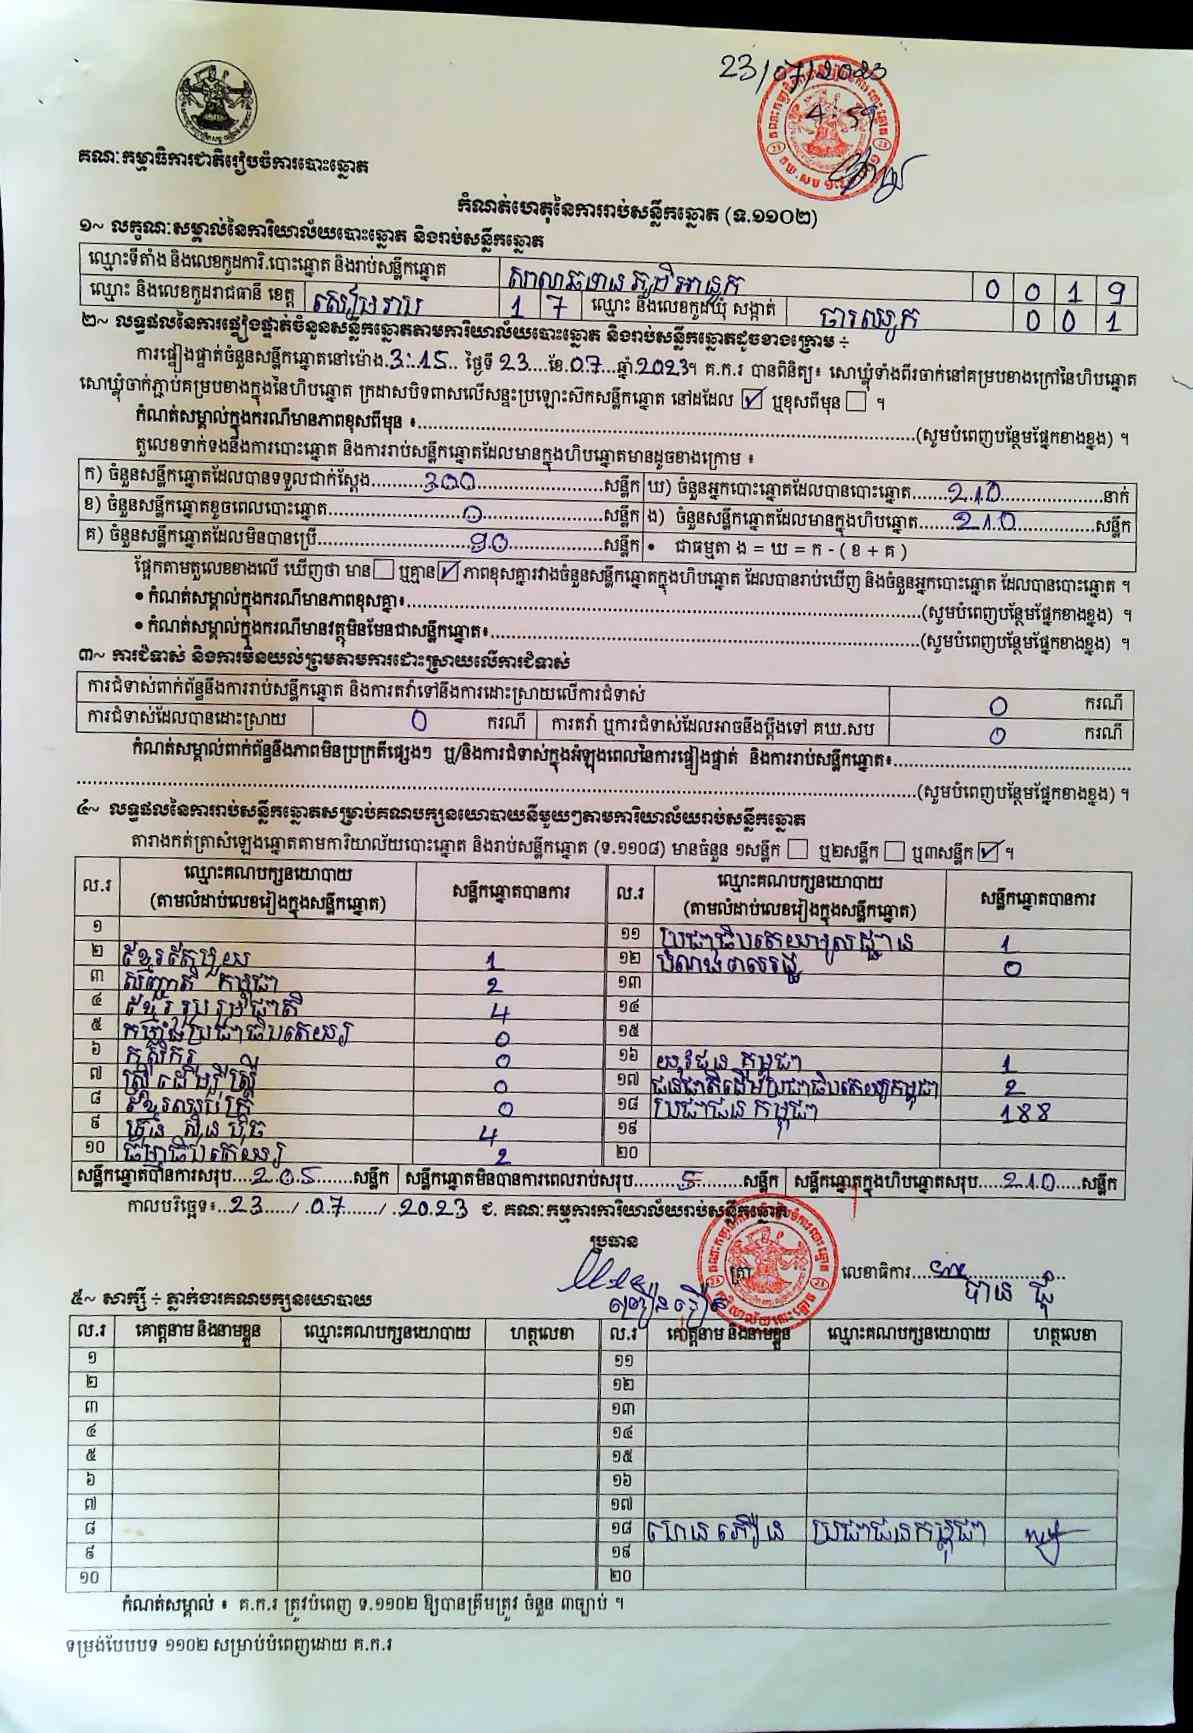 23/07/2023
4:59
គណៈកម្មាធិការជាតិរៀបចំការបោះឆ្នោត
កំណត់ហេតុនៃការរាប់សន្លឹកឆ្នោត (ទ.១១០២)
១~ លក្ខណៈសម្គាល់នៃការិយាល័យបោះឆ្នោត និងរាប់សន្លឹកឆ្នោត
ឈ្មោះទីតាំង និងលេខកូដការិ.បោះឆ្នោត និងរាប់សន្លឹកឆ្នោត 0 0 1 9
ឈ្មោះ និងលេខកូដរាជធានី ខេត្ត សៀមរាប 1 7 ឈ្មោះ និងលេខកូដឃុំ សង្កាត់ ចារឈូក 0 0 1
២~ លទ្ធផលនៃការផ្ទៀងផ្ទាត់ចំនួនសន្លឹកឆ្នោតតាមការិយាល័យបោះឆ្នោត និងរាប់សន្លឹកឆ្នោតដូចខាងក្រោម ÷
ការផ្ទៀងផ្ទាត់ចំនួនសន្លឹកឆ្នោតនៅម៉ោង.3:15.. ថ្ងៃទី 23....ខែ.07...ឆ្នាំ.2023។ គ.ក.រ បានពិនិត្យ៖ សោឃ្លុំទាំងពីរចាក់នៅគម្របខាងក្រៅនៃហិបឆ្នោត
សោឃ្លុំចាក់ភ្ជាប់គម្របខាងក្នុងនៃហិបឆ្នោត ក្រដាសបិទពាសលើសន្ទះប្រឡោះស៊កសន្លឹកឆ្នោត នៅដដែល ☑ ឬខុសពីមុន ☐ ។
កំណត់សម្គាល់ក្នុងករណីមានភាពខុសពីមុន ៖..........(សូមបំពេញបន្ថែមផ្នែកខាងខ្នង) ។
តួលេខទាក់ទងនឹងការបោះឆ្នោត និងការរាប់សន្លឹកឆ្នោតដែលមានក្នុងហិបឆ្នោតមានដូចខាងក្រោម ៖
ក) ចំនួនសន្លឹកឆ្នោតដែលបានទទួលជាក់ស្តែង.......300.......សន្លឹក ឃ) ចំនួនអ្នកបោះឆ្នោតដែលបានបោះឆ្នោត.......210.......នាក់
ខ) ចំនួនសន្លឹកឆ្នោតខូចពេលបោះឆ្នោត.......0.......សន្លឹក ង) ចំនួនសន្លឹកឆ្នោតដែលមានក្នុងហិបឆ្នោត.......210.......សន្លឹក
គ) ចំនួនសន្លឹកឆ្នោតដែលមិនបានប្រើ.......90.......សន្លឹក • ជាធម្មតា ង = ឃ = ក - ( ខ + គ )
ផ្អែកតាមតួលេខខាងលើ ឃើញថា មាន☐ ឬគ្មាន☑ ភាពខុសគ្នារវាងចំនួនសន្លឹកឆ្នោតក្នុងហិបឆ្នោត ដែលបានរាប់ឃើញ និងចំនួនអ្នកបោះឆ្នោត ដែលបានបោះឆ្នោត ។
• កំណត់សម្គាល់ក្នុងករណីមានភាពខុសគ្នា៖..........(សូមបំពេញបន្ថែមផ្នែកខាងខ្នង) ។
• កំណត់សម្គាល់ក្នុងករណីមានវត្ថុមិនមែនជាសន្លឹកឆ្នោត៖..........(សូមបំពេញបន្ថែមផ្នែកខាងខ្នង) ។
៣~ ការជំទាស់ និងការមិនយល់ព្រមតាមការដោះស្រាយលើការជំទាស់
ការជំទាស់ពាក់ព័ន្ធនឹងការរាប់សន្លឹកឆ្នោត និងការតវ៉ាទៅនឹងការដោះស្រាយលើការជំទាស់ 0 ករណី
ការជំទាស់ដែលបានដោះស្រាយ 0 ករណី ការតវ៉ា ឬការជំទាស់ដែលអាចនឹងប្តឹងទៅ គឃ.សប 0 ករណី
កំណត់សម្គាល់ពាក់ព័ន្ធនឹងភាពមិនប្រក្រតីផ្សេងៗ ឬ/និងការជំទាស់ក្នុងអំឡុងពេលនៃការផ្ទៀងផ្ទាត់ និងការរាប់សន្លឹកឆ្នោត៖..........
..........(សូមបំពេញបន្ថែមផ្នែកខាងខ្នង) ។
៤~ លទ្ធផលនៃការរាប់សន្លឹកឆ្នោតសម្រាប់គណបក្សនយោបាយនីមួយៗតាមការិយាល័យរាប់សន្លឹកឆ្នោត
តារាងកត់ត្រាសំឡេងឆ្នោតតាមការិយាល័យបោះឆ្នោត និងរាប់សន្លឹកឆ្នោត (ទ.១១០៨) មានចំនួន ១សន្លឹក ☐ ឬ២សន្លឹក ☐ ឬ៣សន្លឹក ☑ ។
ល.រ ឈ្មោះគណបក្សនយោបាយ (តាមលំដាប់លេខរៀងក្នុងសន្លឹកឆ្នោត) សន្លឹកឆ្នោតបានការ ល.រ ឈ្មោះគណបក្សនយោបាយ (តាមលំដាប់លេខរៀងក្នុងសន្លឹកឆ្នោត) សន្លឹកឆ្នោតបានការ
១ ១១ ប្រជាធិបតេយ្យមូលដ្ឋាន 1
២ ខ្មែរតែមួយ 1 ១២ បំណងពលរដ្ឋ 0
៣ សញ្ជាតិ កម្ពុជា 2 ១៣
៤ ខ្មែររួបរួមជាតិ 4 ១៤
៥ កម្លាំងប្រជាធិបតេយ្យ 0 ១៥
៦ កសិករ 0 ១៦ យុវជន កម្ពុជា 1
៧ ស្រ្តី ដើម្បីស្រ្តី 0 ១៧ ជនជាតិដើមប្រជាធិបតេយ្យកម្ពុជា 2
៨ ខ្មែរឈប់ក្រ 0 ១៨ ប្រជាជន កម្ពុជា 188
៩ ហ្វ៊ុន ស៊ិន ប៉ិច 4 ១៩
១០ ធម្មាធិបតេយ្យ 2 ២០
សន្លឹកឆ្នោតបានការសរុប....205.......សន្លឹក សន្លឹកឆ្នោតមិនបានការពេលរាប់សរុប.......5.......សន្លឹក សន្លឹកឆ្នោតក្នុងហិបឆ្នោតសរុប....210....សន្លឹក
កាលបរិច្ឆេទ៖..23...../.07....../.2023 ជ. គណៈកម្មការការិយាល័យរាប់សន្លឹកឆ្នោត
ប្រធាន
ត្រា លេខាធិការ..........
៥~ សាក្សី ÷ ភ្នាក់ងារគណបក្សនយោបាយ
ល.រ គោត្តនាម និងនាមខ្លួន ឈ្មោះគណបក្សនយោបាយ ហត្ថលេខា ល.រ គោត្តនាម និងនាមខ្លួន ឈ្មោះគណបក្សនយោបាយ ហត្ថលេខា
១ ១១
២ ១២
៣ ១៣
៤ ១៤
៥ ១៥
៦ ១៦
៧ ១៧
៨ ១៨ ប្រជាជនកម្ពុជា
៩ ១៩
១០ ២០
កំណត់សម្គាល់ ៖ គ.ក.រ ត្រូវបំពេញ ទ.១១០២ ឱ្យបានត្រឹមត្រូវ ចំនួន ៣ច្បាប់ ។
ទម្រង់បែបបទ ១១០២ សម្រាប់បំពេញដោយ គ.ក.រ